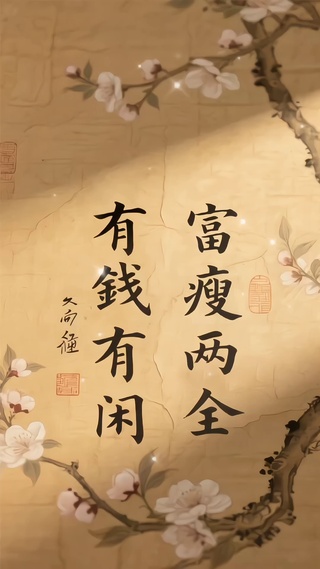 富瘦两全
有錢有闲